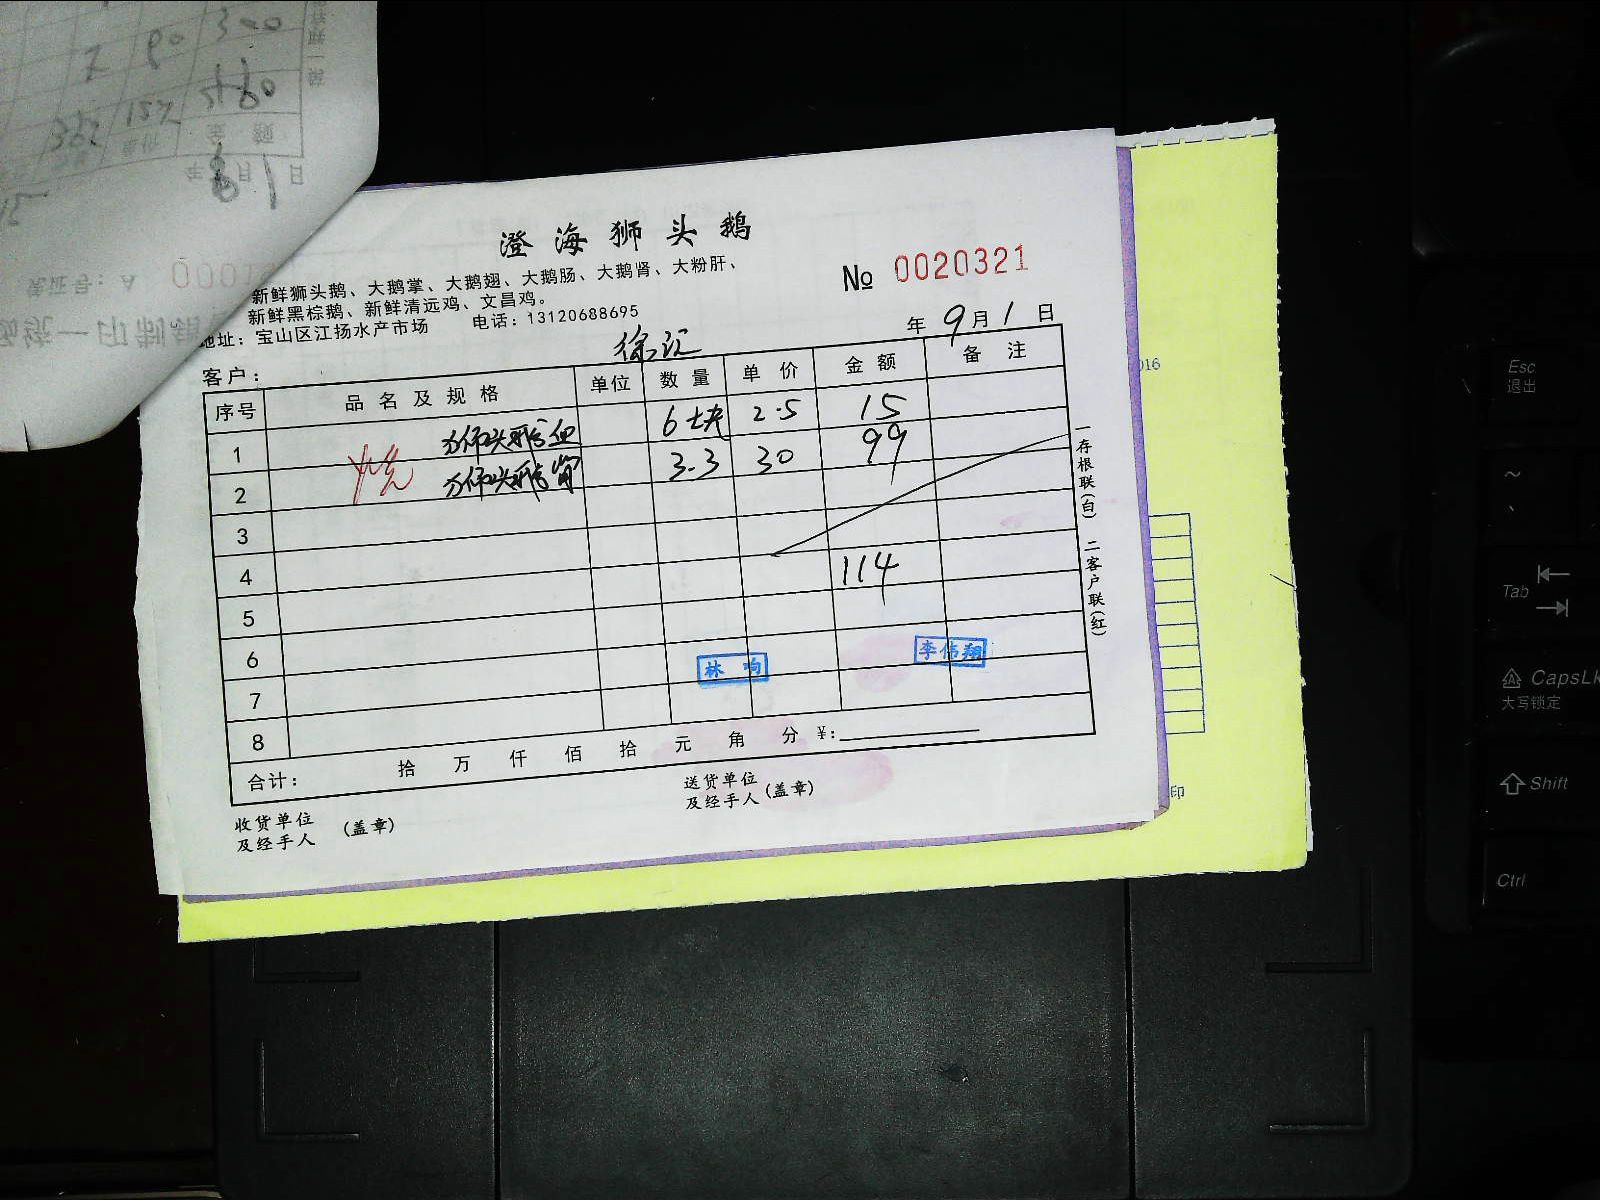 澄海狮头鹅
新鲜狮头鹅、大鹅掌、大鹅翅、大鹅肠、大鹅肾、大粉肝、
新鲜黑棕鹅、新鲜清远鸡、文昌鸡。
地址：宝山区江扬水产市场 电话：13120688695
№ 0020321
年 9月 1 日
客户： 徐记
序号 品名及规格 单位 数量 单价 金额 备注
1 狮头鹅血 6块 2.5 15
2 狮头鹅肾 3.3 30 99
烧
3
4 114
5
6
7
8
林 响
李伟翔
合计： 拾 万 仟 佰 拾 元 角 分 ¥：
收货单位
及经手人 (盖章)
送货单位
及经手人 (盖章)
一存根联(白) 二客户联(红)
016
印
Esc
退出
~
Tab
CapsLk
大写锁定
Shift
Ctrl